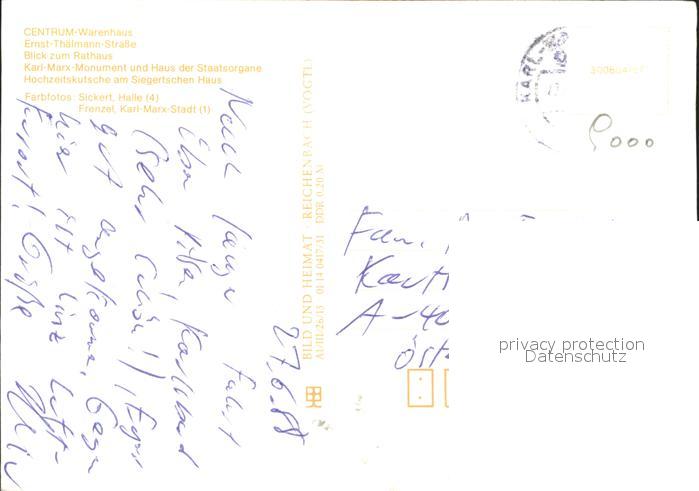 CENTRUM-Warenhaus
Ernst-Thälmann-Straße
Blick zum Rathaus
Karl-Marx-Monument und Haus der Staatsorgane
Hochzeitskutsche am Siegertschen Haus
Farbfotos: Sickert, Halle (4)
Frenzel, Karl-Marx-Stadt (1)
27.6.88
Nach langer Fahrt
über Pilsen, Karlsbad
(Sehr schön!), Eger
gut angekommen. Gegen
hier ist Linz Luft-
kurort! Grüße
BILD UND HEIMAT REICHENBACH (VOGTL)
A1/III-26/13 01 14 0417/31 DDR 0,20 M
KARL-
9000
Fam.
A-40
Öst
privacy protection
Datenschutz